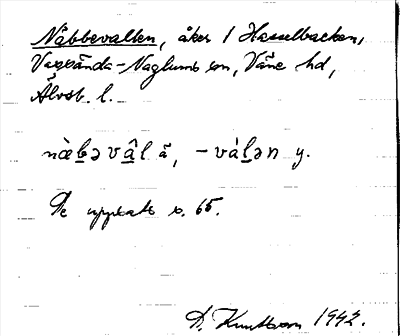 Nåbbevallen, åker / Hasselbacken,
Vassända-Naglums sn, Väne hd,
Älvsb. l.
nàbəvâl å, -válən y.
Se uppsats s. 65.
D. Knutsson 1942.